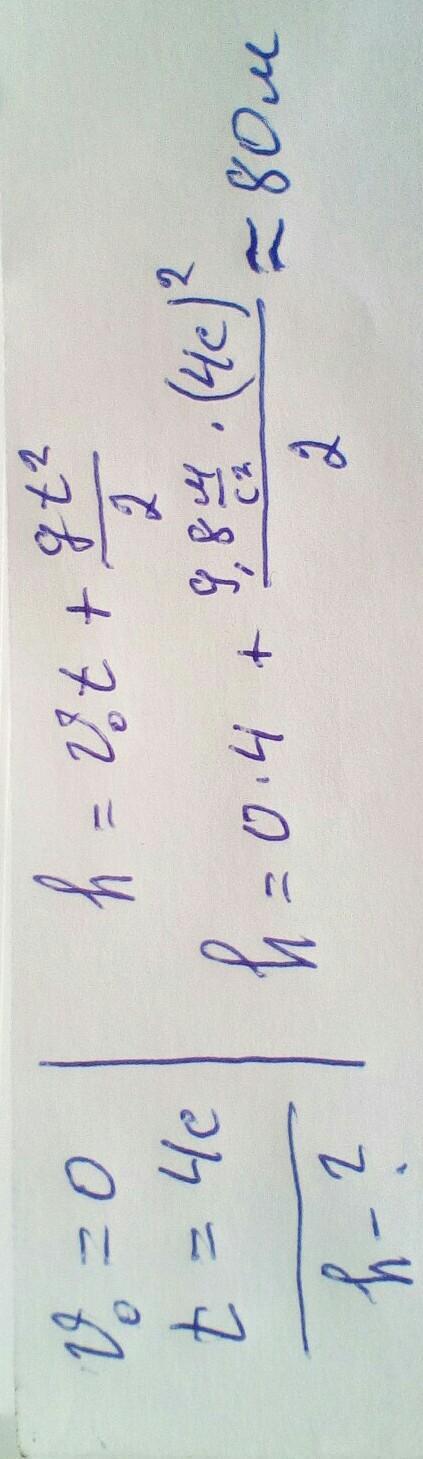 v₀ = 0
t = 4c
h - ?
h = v₀t + gt²/2
h = 0·4 + 9,8 м/с² · (4с)²/2 ≈ 80 м